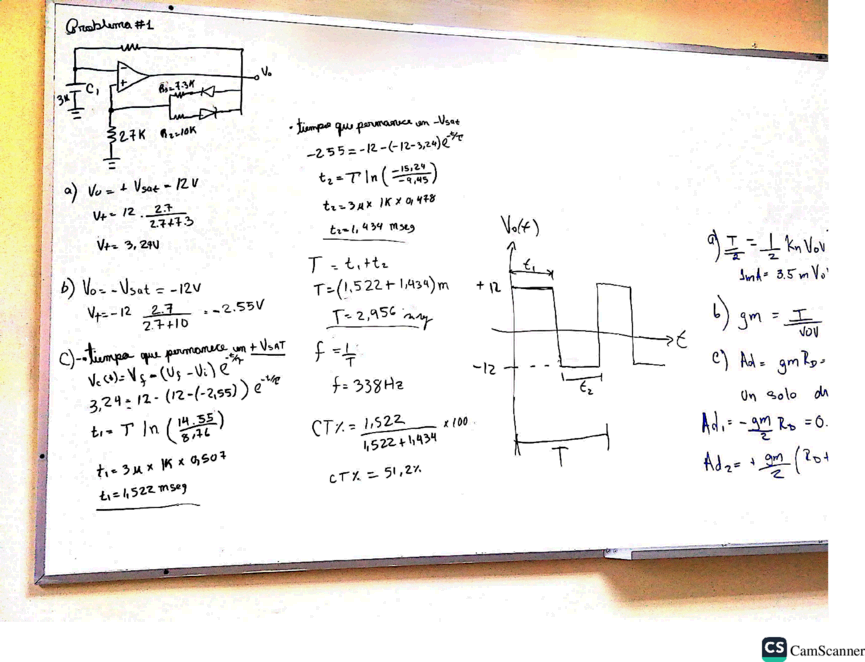 Problema #1
C₁
3μ
V₀
R₁=7.3K
R₂=10K
2.7K
a) V₀ = + Vsat = 12V
V+ = 12 . 2.7 / 2.7+7.3
V+ = 3,24V
b) V₀ = -Vsat = -12V
V+ = -12 2.7 / 2.7+10 = -2.55V
c) - • tiempo que permanece en + VSAT
Vc(t) = Vf - (Vf - Vi) e^-t/τ
3,24 = 12 - (12-(-2,55)) e^-t/τ
t₁ = τ ln (14.55 / 8,76)
t₁ = 3μ x 1K x 0,507
t₁ = 1,522 mseg
• tiempo que permanece en -Vsat
-2.55 = -12 - (-12-3,24) e^-t/τ
t₂ = τ ln (-15,24 / -9,45)
t₂ = 3μ x 1K x 0,478
t₂ = 1,434 mseg
T = t₁ + t₂
T = (1,522 + 1,434) m
T = 2,956 mseg
f = 1/T
f = 338Hz
CT% = 1,522 / 1,522 + 1,434 x 100
CT% = 51,2%
V₀(t)
t₁
+12
t
-12
t₂
T
a) I/2 = 1/2 Kn Vov
1mA = 3.5m Vo
b) gm = I / VOV
c) Ad = gm RD
Un solo
Ad₁ = -gm/2 RD = 0.
Ad₂ = + gm/2 (RD+
CS CamScanner